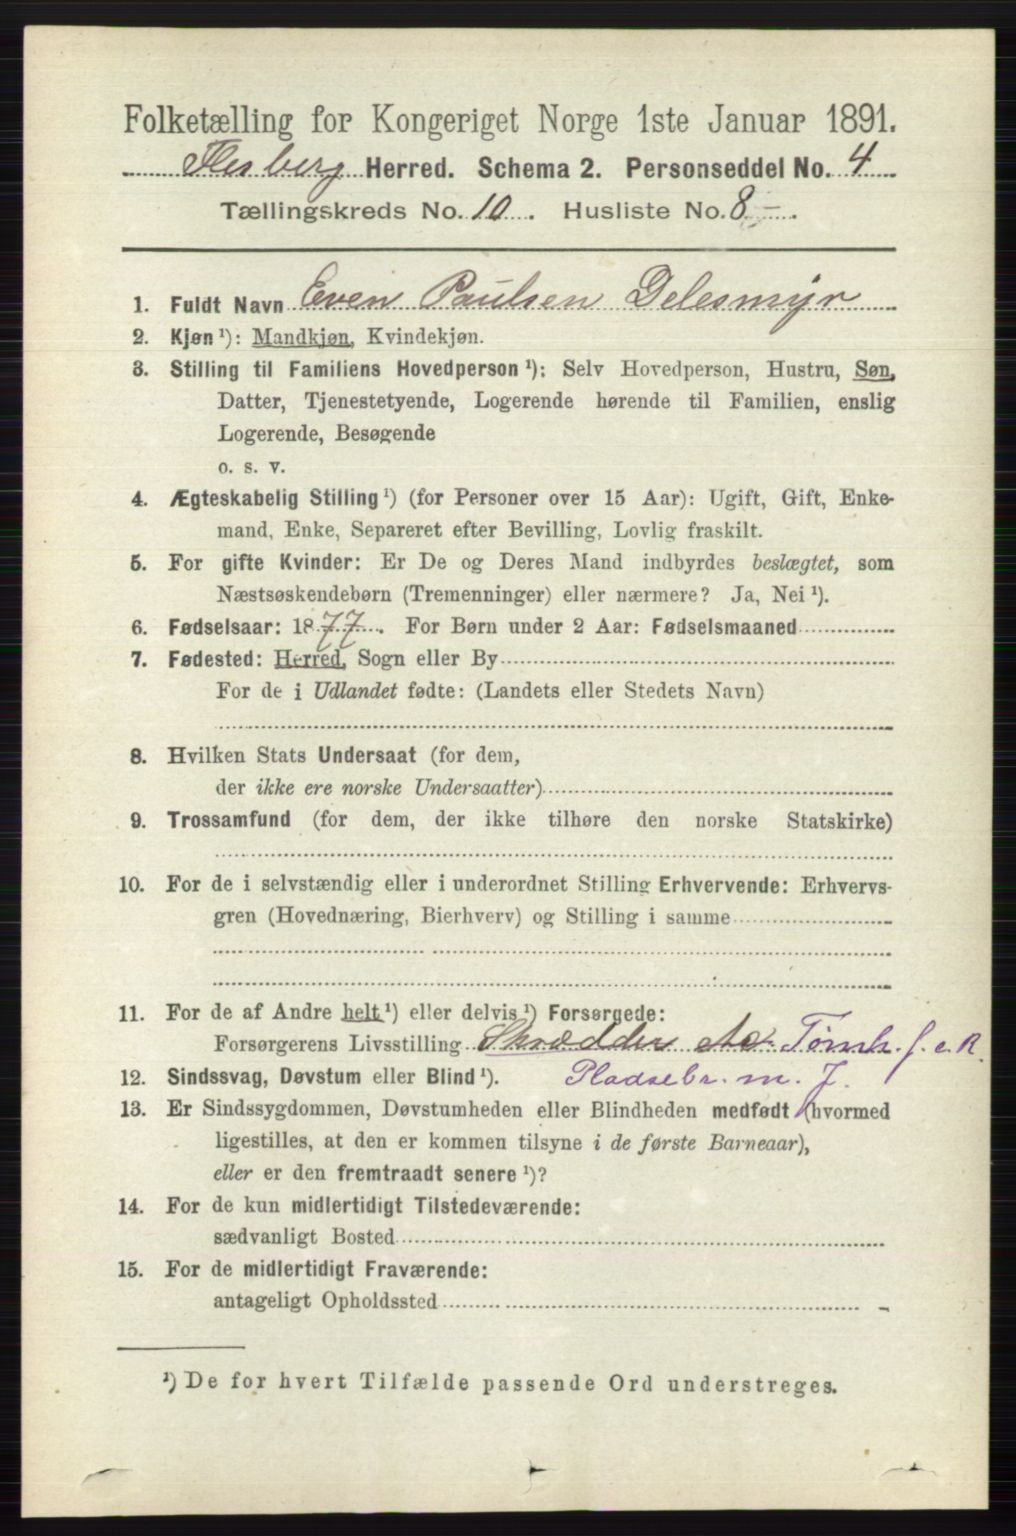 Folketælling for Kongeriget Norge 1ste Januar 1891.
Flesberg Herred. Schema 2. Personseddel No. 4
Tællingskreds No. 10. Husliste No. 8.
1. Fuldt Navn Even Paulsen Delesmyr
2. Kjøn ¹): Mandkjøn, Kvindekjøn.
3. Stilling til Familiens Hovedperson ¹): Selv Hovedperson, Hustru, Søn,
Datter, Tjenestetyende, Logerende hørende til Familien, enslig
Logerende, Besøgende
o. s. v.
4. Ægteskabelig Stilling ¹) (for Personer over 15 Aar): Ugift, Gift, Enke-
mand, Enke, Separeret efter Bevilling, Lovlig fraskilt.
5. For gifte Kvinder: Er De og Deres Mand indbyrdes beslægtet, som
Næstsøskendebørn (Tremenninger) eller nærmere? Ja, Nei ¹).
6. Fødselsaar: 1877. For Børn under 2 Aar: Fødselsmaaned
7. Fødested: Herred, Sogn eller By
For de i Udlandet fødte: (Landets eller Stedets Navn)
8. Hvilken Stats Undersaat (for dem,
der ikke ere norske Undersaatter)
9. Trossamfund (for dem, der ikke tilhøre den norske Statskirke)
10. For de i selvstændig eller i underordnet Stilling Erhvervende: Erhvervs-
gren (Hovednæring, Bierhverv) og Stilling i samme
11. For de af Andre helt ¹) eller delvis ¹) Forsørgede:
Forsørgerens Livsstilling Skrædder Tømh. f. e. R.
12. Sindssvag, Døvstum eller Blind ¹). Pladsebr. m. J.
13. Er Sindssygdommen, Døvstumheden eller Blindheden medfødt (hvormed
ligestilles, at den er kommen tilsyne i de første Barneaar),
eller er den fremtraadt senere ¹)?
14. For de kun midlertidigt Tilstedeværende:
sædvanligt Bosted
15. For de midlertidigt Fraværende:
antageligt Opholdssted
¹) De for hvert Tilfælde passende Ord understreges.